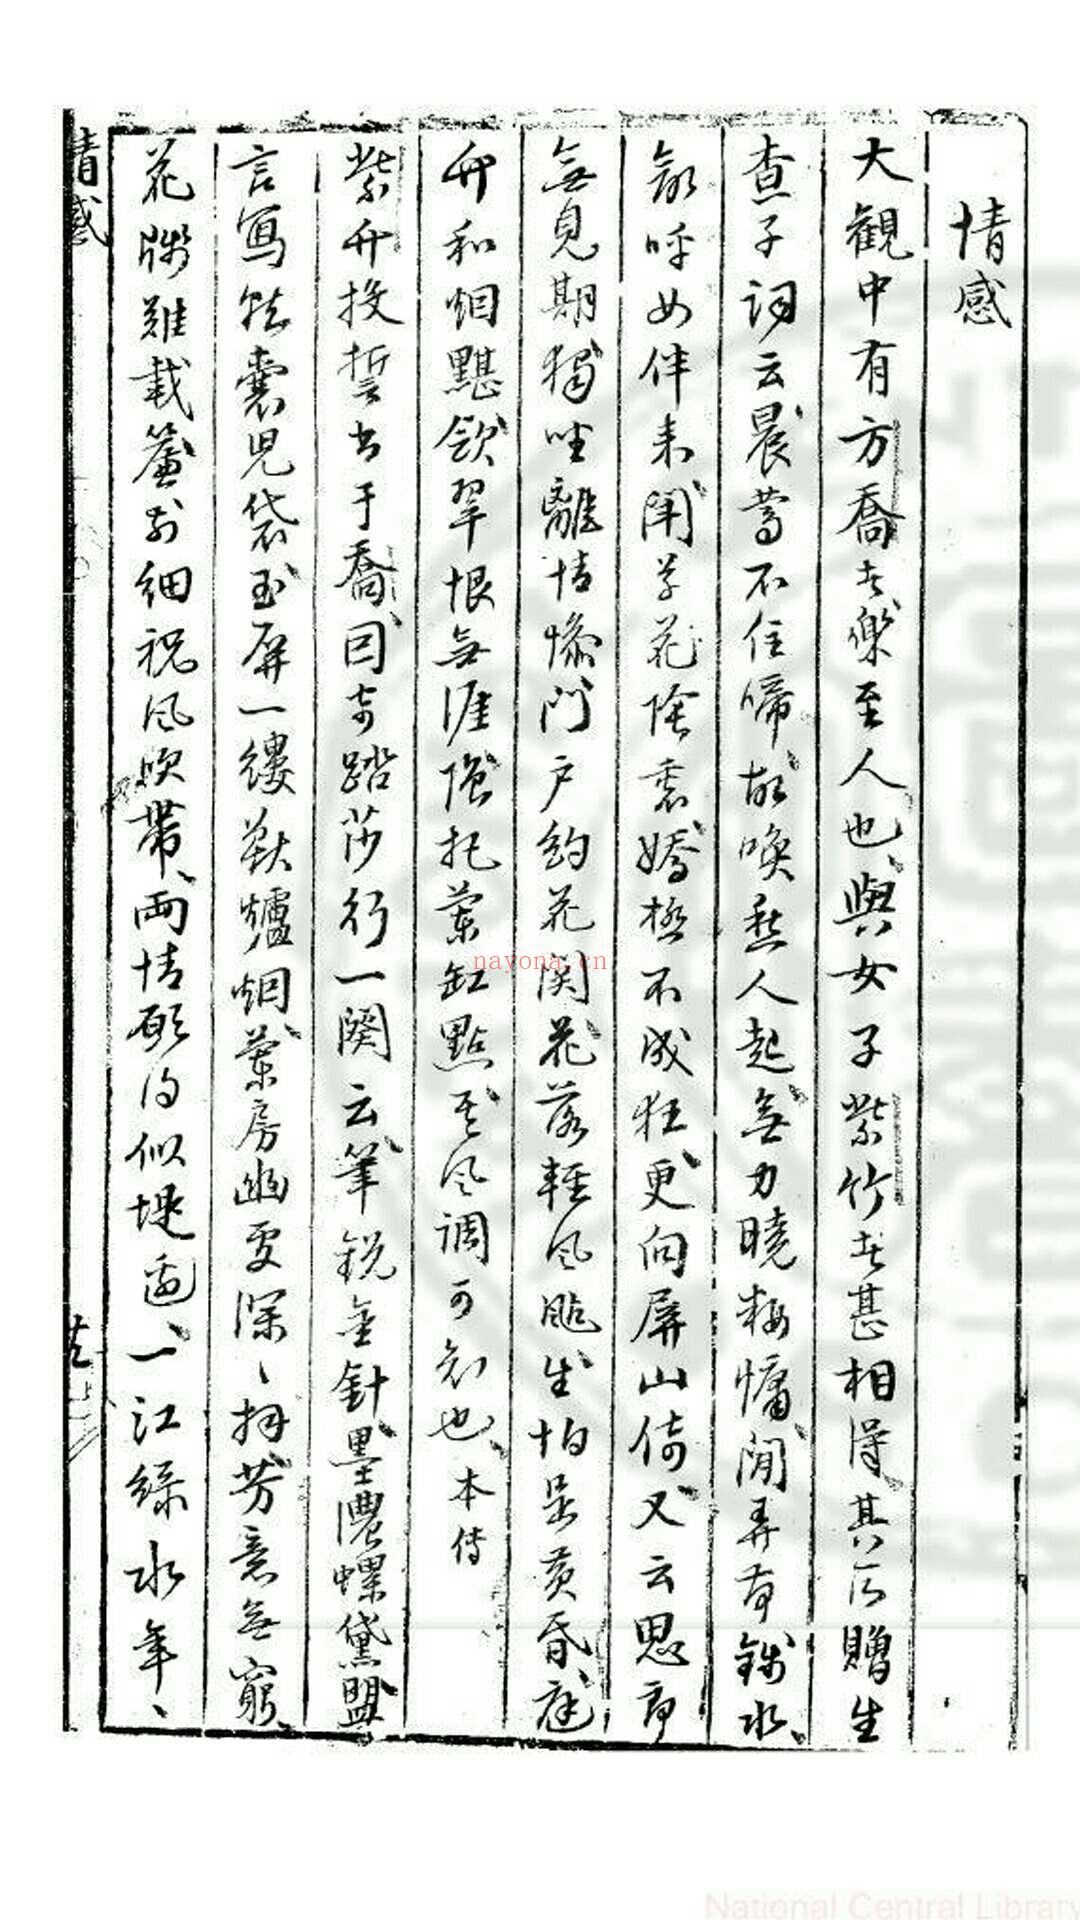 情感
大觀中有方喬者樂至人也與女子紫竹者甚相得其所贈生
查子詞云晨鶯不住啼故喚愁人起無力曉粧慵閒弄荷錢水
欲呼女伴来鬬草花陰裏嬌極不成狂更向屏山倚又云思郎
無見期獨坐離情慘門戶約花関花落輕風颭生怕是黄昏庭
竹和烟黮斂翠恨無涯強把蘭缸點其風调可知也本傳
紫竹投誓书于喬因寄踏莎行一闋云筆銳金針墨濃螺黛盟
言寫就囊児袋玉屏一縷獣爐烟蘭房幽更深深拜芳意無窮
花牋難載簾前細祝風吹帶兩情願得似堤邊一江綠水年年
情感
nayona.cn
National Central Library